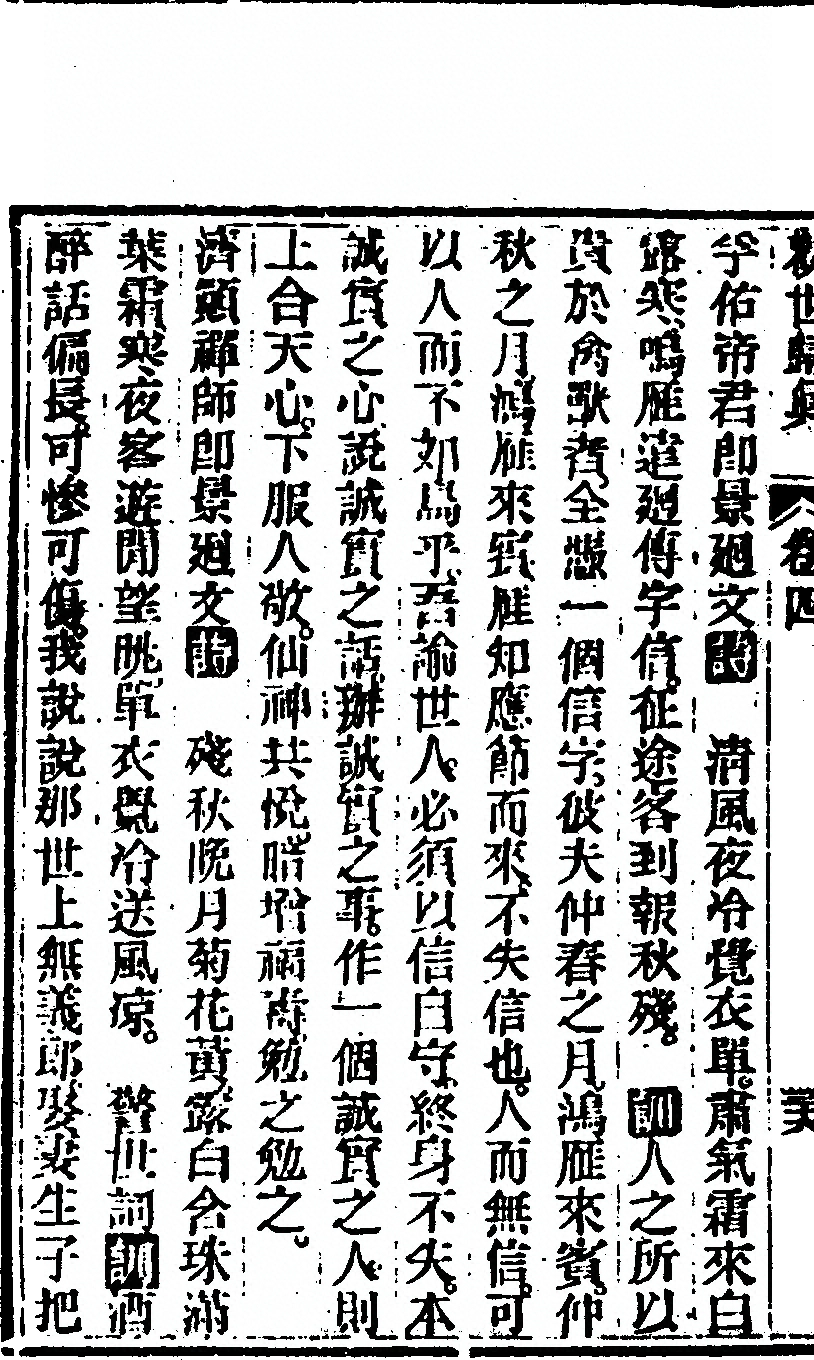 救世歸真 卷四
孚佑帝君卽景廻文詩 清風夜冷覺衣單。肅氣霜來白
露寒、鳴雁遠廻傳字信。征途客到報秋殘。 訓人之所以
貴於禽獸者。全憑一個信字、彼夫仲春之月、鴻雁來賓。仲
秋之月、鴻雁來賓、雁知應節而來、不失信也。人而無信。可
以人而不如鳥乎、吾諭世人。必須以信自守、終身不失。本
誠實之心、說誠實之話、辦誠實之事。作一個誠實之人。則
上合天心。下服人敬。仙神共悅、暗增福壽、勉之勉之。
濟顚禪師卽景廻文詩 殘秋晚月菊花黃、露白含珠滿
葉霜、寒夜客遊閒望眺、單衣覺冷送風凉。 警世詞訓酒
醉話偏長。可慘可傷。我說說那世上無義郎、娶妻生子把